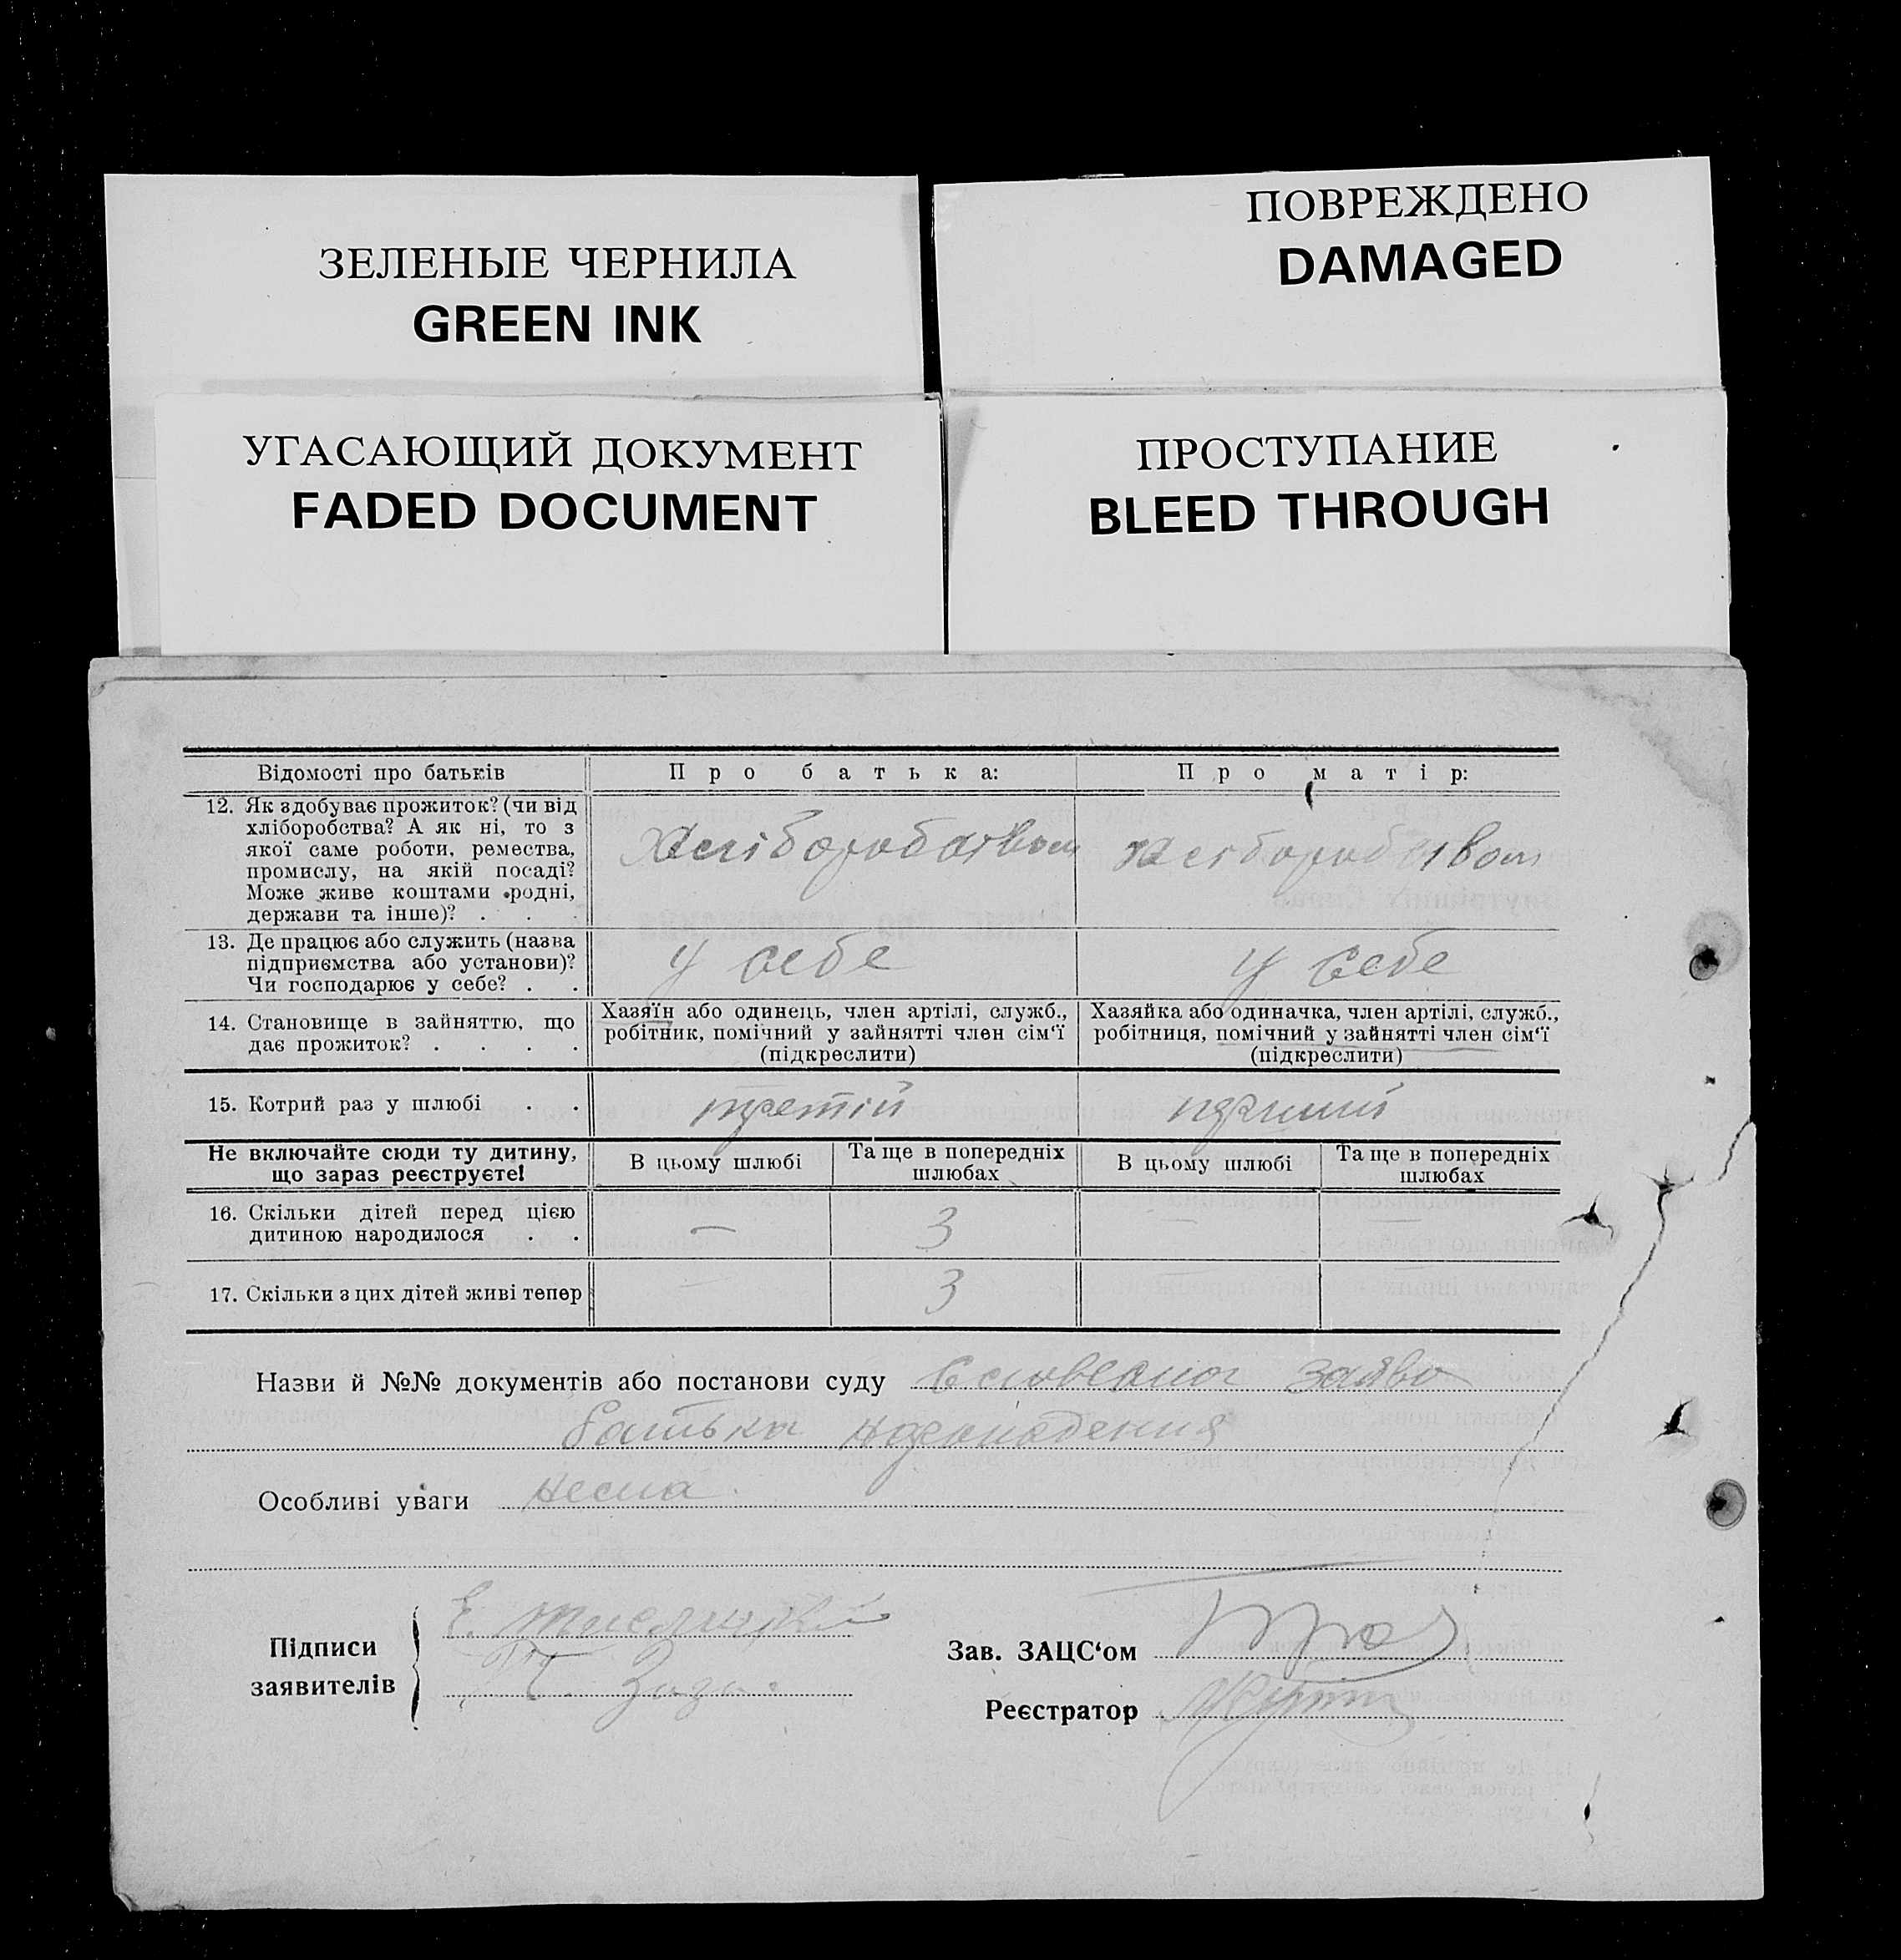 ЗЕЛЕНЫЕ ЧЕРНИЛА
GREEN INK
ПОВРЕЖДЕНО
DAMAGED
УГАСАЮЩИЙ ДОКУМЕНТ
FADED DOCUMENT
ПРОСТУПАНИЕ
BLEED THROUGH
Відомості про батьків
Про батька:
Про матір:
12. Як здобуває прожиток? (чи від
хліборобства? А як ні, то з
якої саме роботи, ремества,
промислу, на якій посаді?
Може живе коштами родні,
держави та інше)? . . .
Хліборобством
хліборобством
13. Де працює або служить (назва
підприємства або установи)?
Чи господарює у себе? . .
у себе
у себе
14. Становище в зайняттю, що
дає прожиток? . . . .
Хазяїн або одинець, член артілі, служб.,
робітник, помічний у зайнятті член сім‘ї
(підкреслити)
Хазяйка або одиначка, член артілі, служб.,
робітниця, помічний у зайнятті член сім‘ї
(підкреслити)
15. Котрий раз у шлюбі . .
третій
перший
Не включайте сюди ту дитину,
що зараз реєструєте!
В цьому шлюбі
Та ще в попередніх
шлюбах
В цьому шлюбі
Та ще в попередніх
шлюбах
16. Скільки дітей перед цією
дитиною народилося . .
—
3
—
—
17. Скільки з цих дітей живі тепер
—
3
—
—
Назви й №№ документів або постанови суду Словесна заява
батька
Особливі уваги нема
Підписи
заявителів
Е.
Зав. ЗАЦС‘ом
Реєстратор